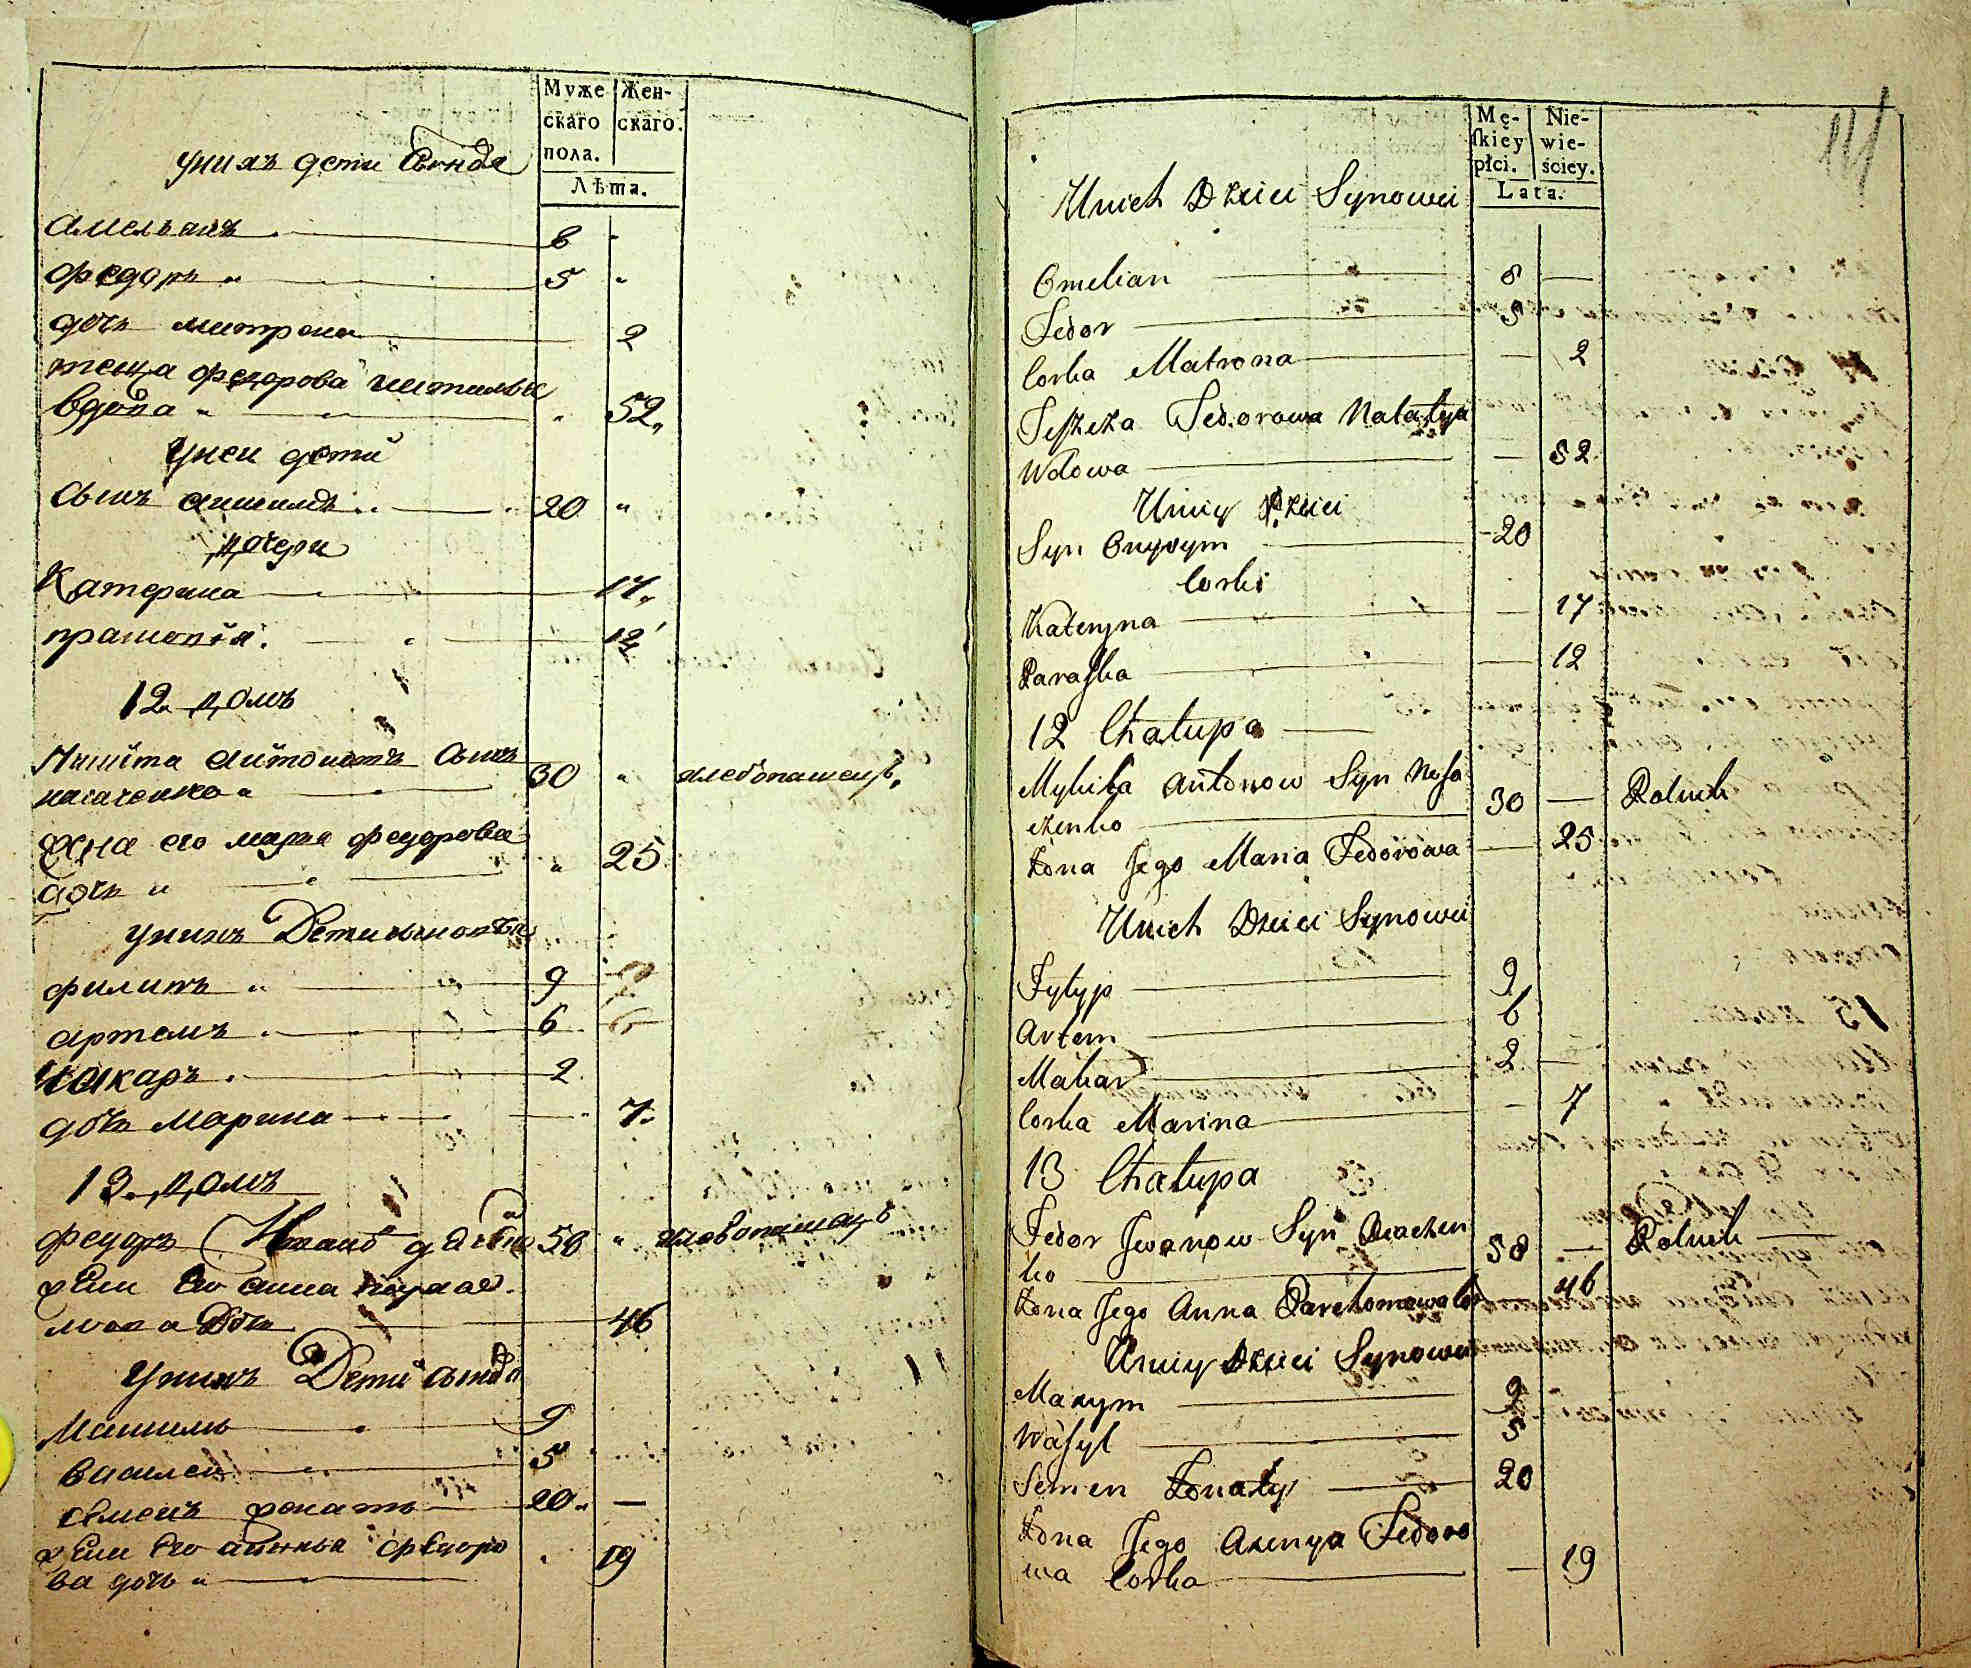 Муже
скаго
пола.
Жен-
скаго.
Лѣта.
унихъ дети
8
федоръ 5
дочь 2
теща федорова
вдова 52
унеи дети
сынъ 20
дочери
Катерина 17
12
12 домъ
Никита сынъ
30 хлебопашецъ
жена его марья федорова
дочь 25
унихъ Дети
филипъ 9
артемъ 6
макаръ 2
дочь Марина 7
13 домъ
федоръ 50 хлебопашецъ
его анна
дочь 46
унихъ Дети
9
василеи 5
семенъ женатъ 20
его федоро
ва дочь 19
Mę-
skiey
płci.
Nie-
wie-
ściey.
Lata.
Unich Dzieci Synowei
Omelian 8 —
Fedor 5
Corka Matrona — 2
Teszcza Fedorowa Natalya
Wdowa — 52
Uniey Dzieci
Syn Onysym 20
Corki
Kateryna — 17
Paraska — 12
12 Chałupa
Mykita Antonow Syn Nosa
czenko 30 — Rolnik
Żona Jego Maria Fedorowa — 25
Unich Dzieci Synowei
Fylyp 9
Artem 6
Makar 2 —
Corka Marina — 7
13 Chałupa
Fedor Jwanow Syn Deaczen
ko 50 — Rolnik
Żona Jego Anna Parchomowa Cor — 46
Uniey Dzieci Synowei
Maxym 9
Wasyl 5
Semen Żonaty 20
Żona Jego Axenya Fedoro
wa Corka — 19